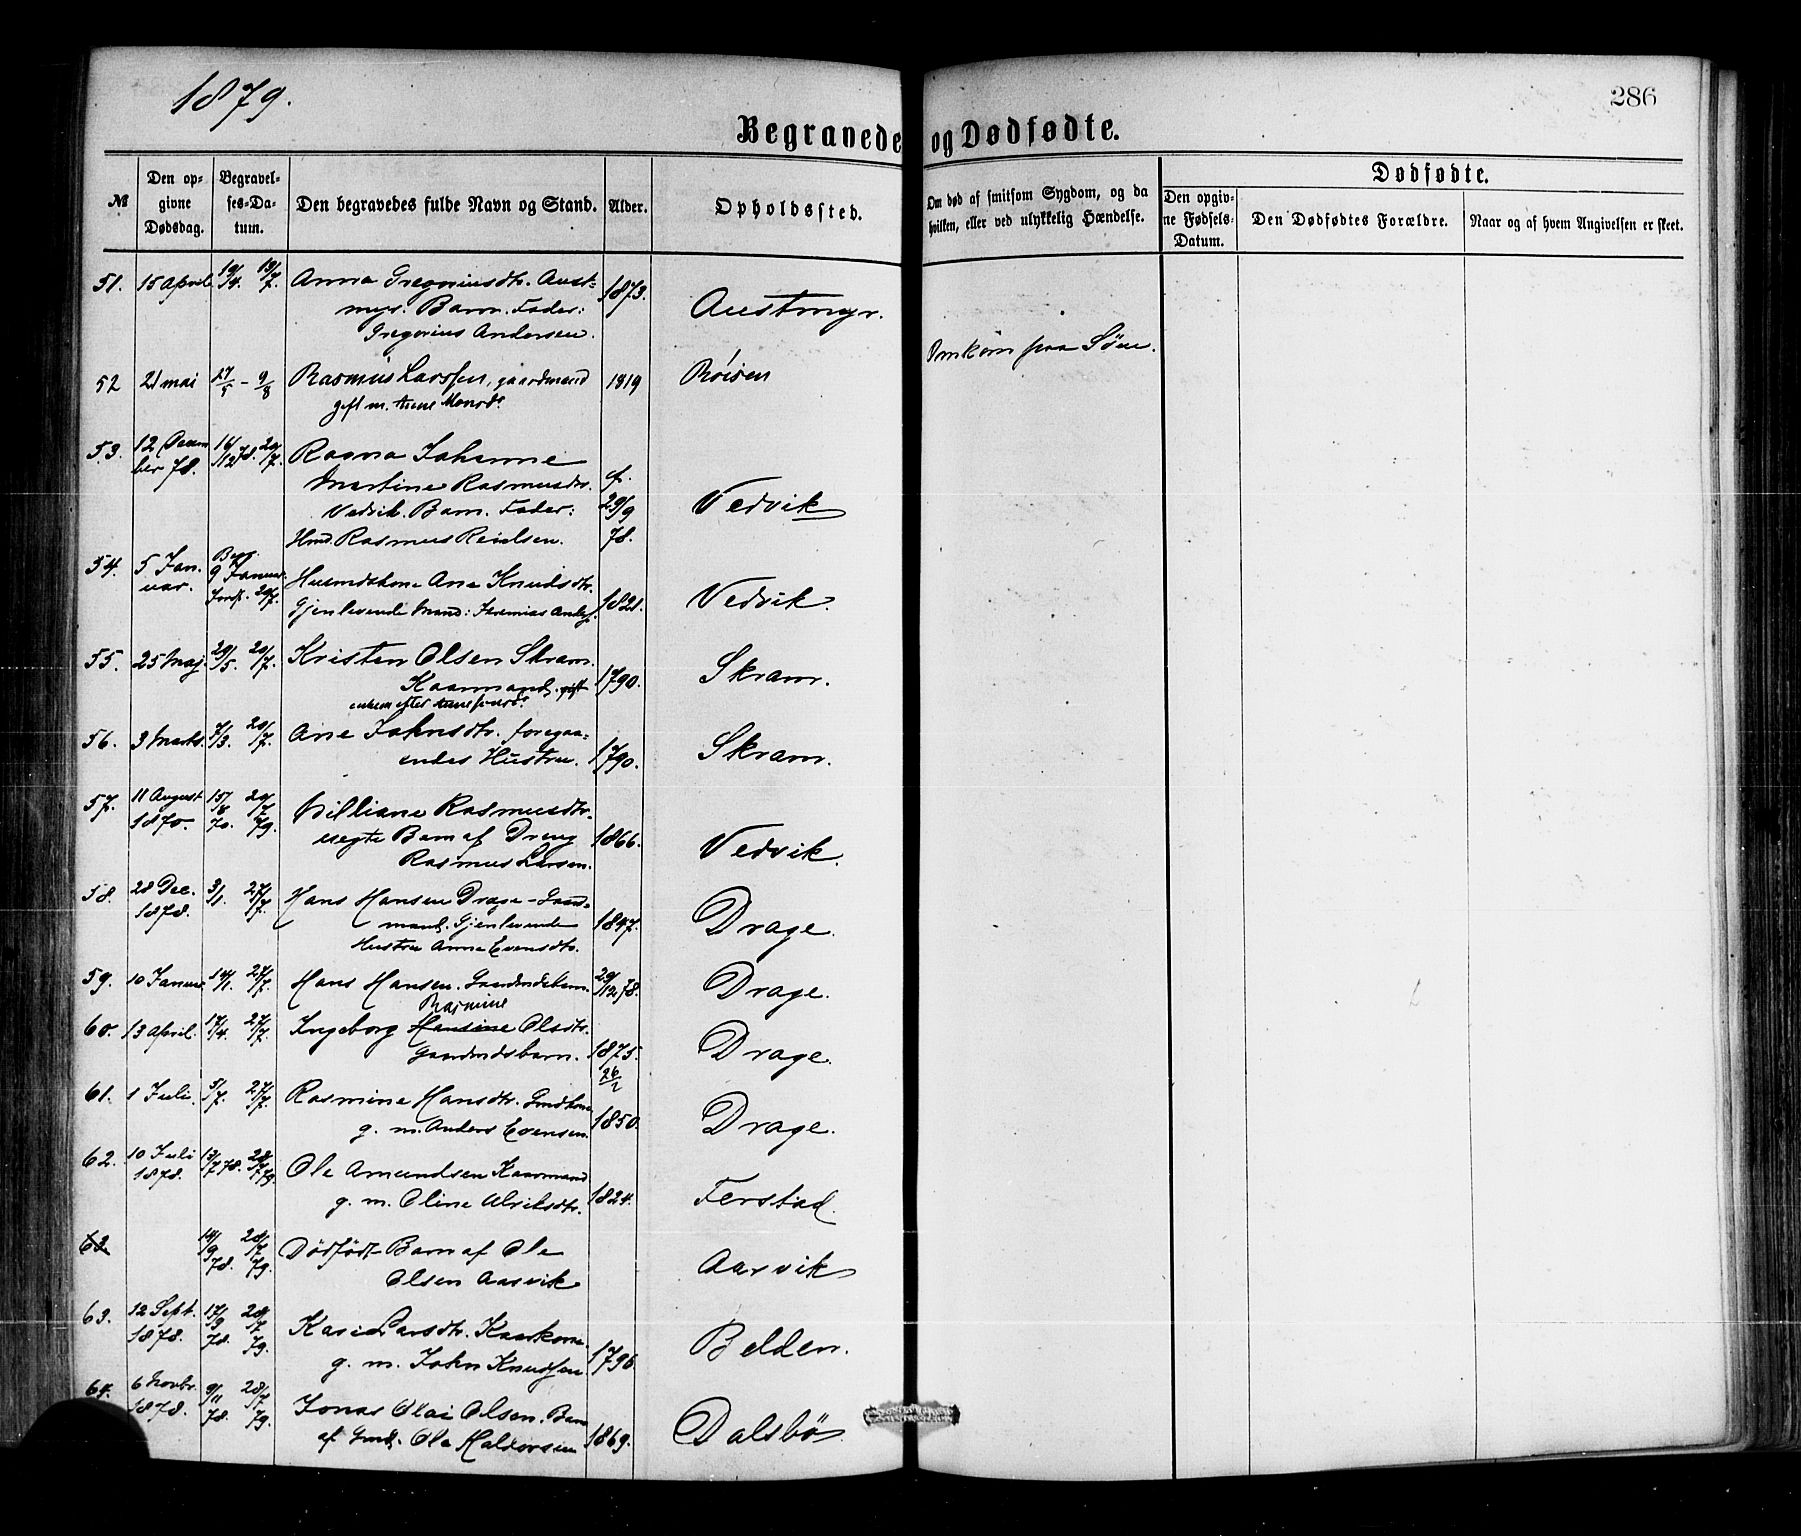 1879.
286
Begravede og Dødfødte.
№
Den opgivne Dødsdag.
Begravelses-Datum.
Den begravedes fulde Navn og Stand.
Alder.
Opholdssted.
Om død af smitsom Sygdom, og da hvilken, eller ved ulykkelig Hændelse.
Dødfødte.
Den opgivne Fødsels-Datum.
Den Dødfødtes Forældre.
Naar og af hvem Angivelsen er skeet.
51. 15 April 19/4. 19/7. Anna Gregoriusdtr. Aust- 1873. Austmyr.
myr. Barn. Fader:
Gregorius Andersen.
52 21 mai 27/5 - 9/8 Rasmus Larssen, gaardmand 1819 Röisen Omkom paa Söen.
gift m. Anne Monsdr
53. 12 Decem 16/12 78. 20/7. Ragna Johanne
ber 78. Martine Rasmusdtr. f.
Vedvik. Barn. Fader: 29/9 Vedvik
Hmd. Rasmus Reielsen. 78.
54. 5 Jan- Begr. 9 Januar
uar. Jordf. 20/7. Husmdskone Ane Knudsdtr. 1821. Vedvik.
Gjenlevende Mand: Jeremias Anders.
55. 25 Maj. 29/5. 20/7. Kristen Olsen Skram. 1790. Skram.
Kaarmand. gift
enkem efter
56. 3 Marts. 7/3. 20/7. Ane Johnsdtr. foregaa- 1790. Skram.
endes Hustru.
57. 11 August 15/8 20/7 Villiane Rasmusdtr.
1870. 70. 79. uegte Barn af Dreng 1866. Vedvik.
Rasmus Larsen.
58. 28 Dec. 3/1. 27/7. Hans Hansen Drage - Gaard- 1847. Drage.
1878. mand. Gjenlevende
Hustru Anna Evensdtr.
59. 10 Januar. 14/1. 27/7. Hans Hansen. Gaardmdsbarn. 29/12 78. Drage.
Rasmine
60. 13 April. 17/4. 27/7. Ingeborg Hansine Olsdtr. 1875. Drage.
Gaardmdsbarn. 26/2
61. 1 Juli. 5/7. 27/7. Rasmine Hansdtr. Gmdkone 1850. Drage.
g. m. Anders Evensen.
62. 10 Juli 13/7 78. 28/7 79. Ole Amundsen Kaarmand 1824. Ferstad.
1878. g. m. Oline Alriksdtr.
63 14/9 78. 28/7 79. Dödfödt Barn af Ole Aarvik
Olsen Aarvik
63. 12 Sept. 17/9 28/7 Kari Larsdtr. Kaarkone. 1796 Belden.
1878. 78. 79. g. m. John Knudsen
64. 6 Novbr. 9/11 28/7 Jonas Olai Olsen. Barn 1869. Dalsbö.
1878. 78. 79. af Gmd. Ole Haldorsen